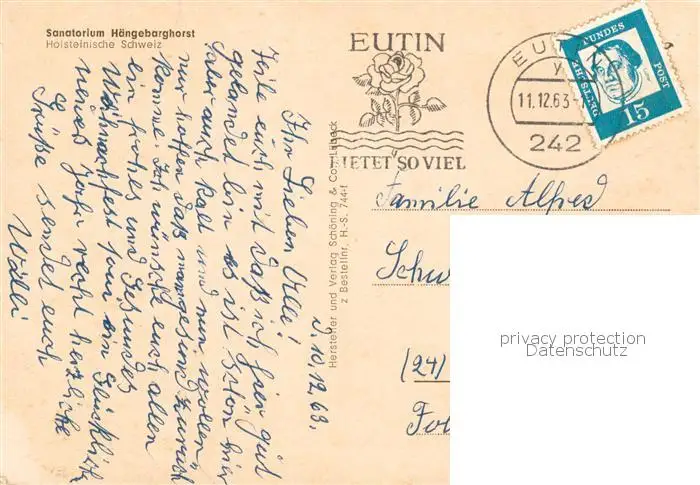 Sanatorium Hängebarghorst
Holsteinische Schweiz
D. 10.12.63.
Ihr Lieben Alle!
Teile euch mit daß ich hier gut
gelandet bin es ist schön hier
aber auch kalt und nun wollen
nur hoffen daß man gesund zurück
komme. Ich wünsche euch allen
ein frohes und Gesundes
Weihnachtfest sowie ein Glückliches
neues Jahr recht herzliche
Grüße sendet euch
Willi
Hersteller und Verlag Schöning & Co., Lübeck
z Bestellnr. H.-S. 744-f
EUTIN
BIETET SO VIEL
EUTIN
11.12.63
242
DEUTSCHE BUNDESPOST
15
Familie Alfred
Schw
(24)
privacy protection
Datenschutz